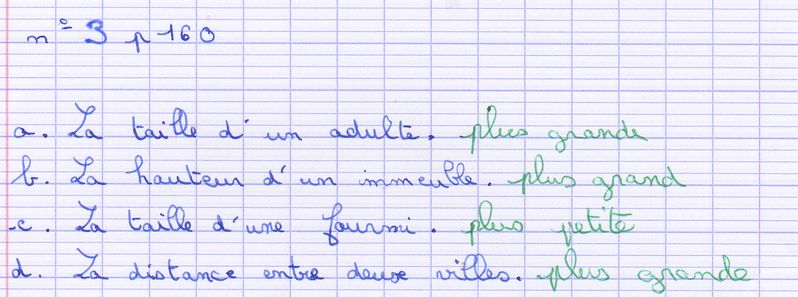 n° 3 p 160
a. La taille d'un adulte. plus grande
b. La hauteur d'un immeuble. plus grand
c. La taille d'une fourmi. plus petite
d. La distance entre deux villes. plus grande